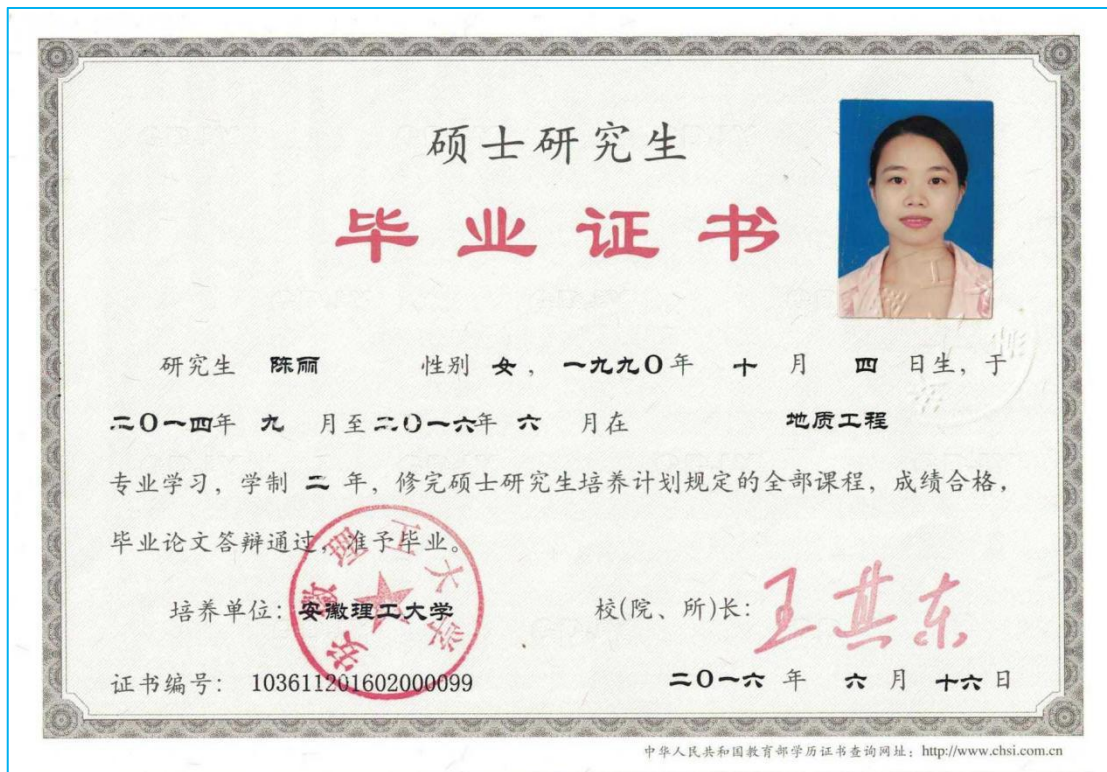 硕士研究生
毕业证书
研究生 陈丽 性别 女，一九九〇年 十 月 四 日生，于
二〇一四年 九 月至二〇一六年 六 月在 地质工程
专业学习，学制 二 年，修完硕士研究生培养计划规定的全部课程，成绩合格，
毕业论文答辩通过，准予毕业。
培养单位：安徽理工大学
校(院、所)长：
安徽理工大学
证书编号：103611201602000099
二〇一六 年 六 月 十六 日
中华人民共和国教育部学历证书查询网址：http://www.chsi.com.cn